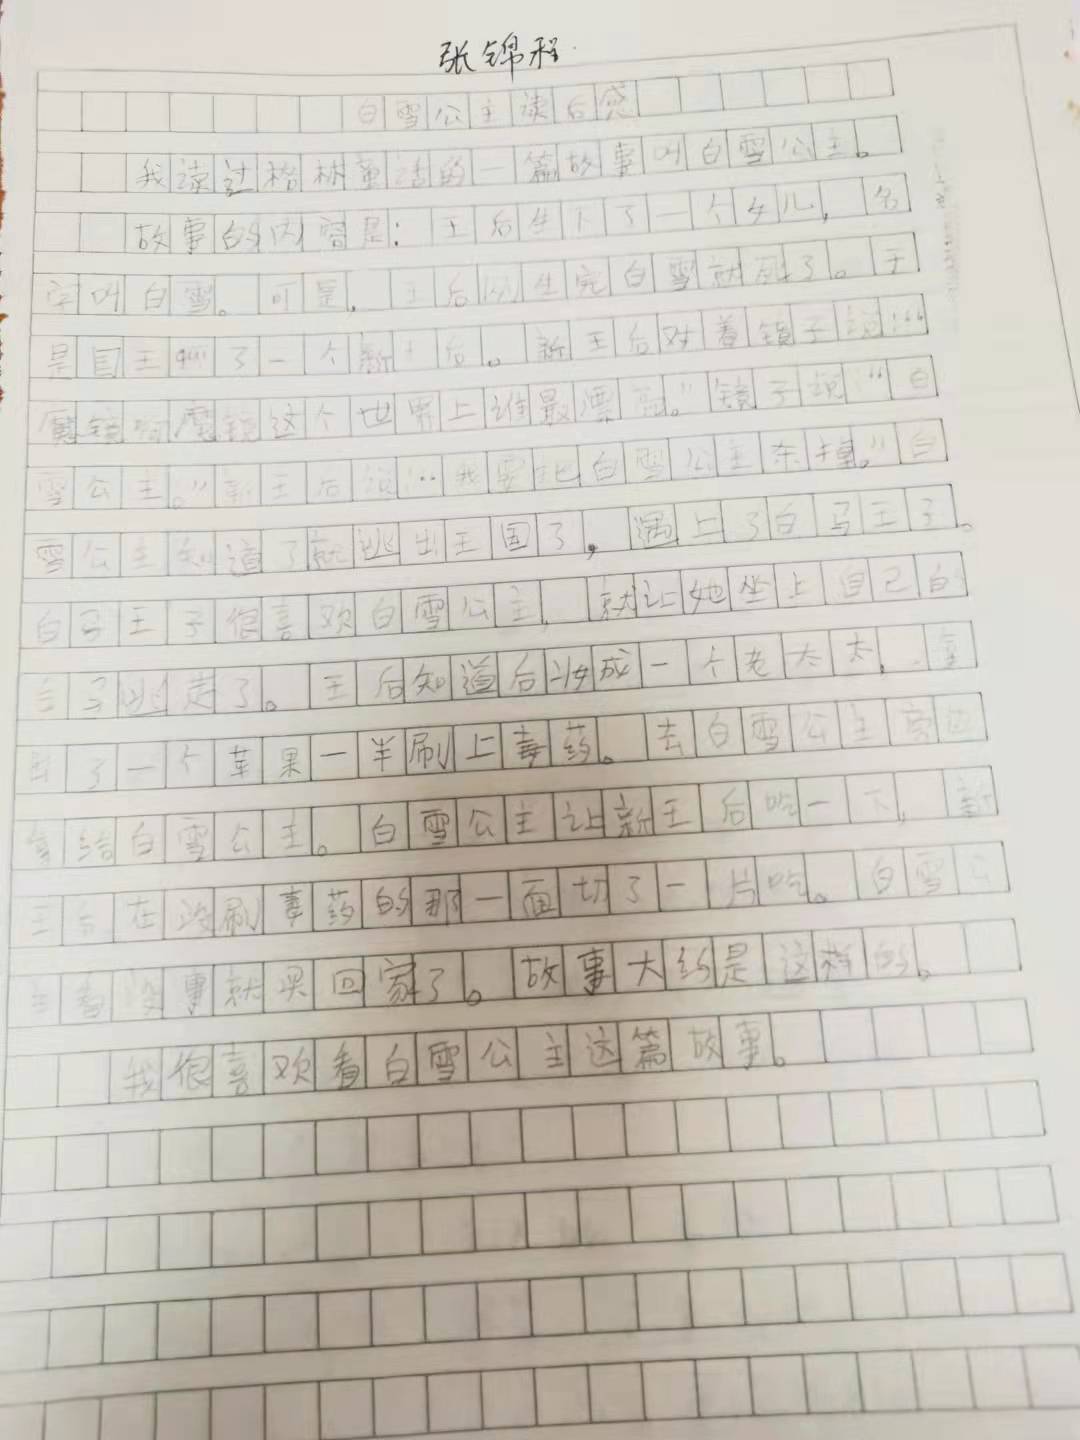 张锦程
白雪公主读后感
我读过格林童话的一篇故事叫白雪公主。
故事的内容是：王后生下了一个女儿，名
字叫白雪。可是，王后生完白雪就死了。于
是国王了一个新王后。新王后对着镜子说：“
魔镜啊魔镜这个世界上谁最漂亮。”镜子说“白
雪公主。”新王后说：“我要把白雪公主掉。”白
雪公主知道了就逃出王国了，遇上了白马王子。
白马王子很喜欢白雪公主，就让她坐上自己的
白马逃走了。王后知道后成一个老太太，拿
出了一个苹果一半刷上毒药。去白雪公主
拿给白雪公主。白雪公主让新王后吃一下，新
王后在没刷毒药的那一面切了一片吃。白雪公
主看没事就买回家了。故事大约是这样的。
我很喜欢看白雪公主这篇故事。